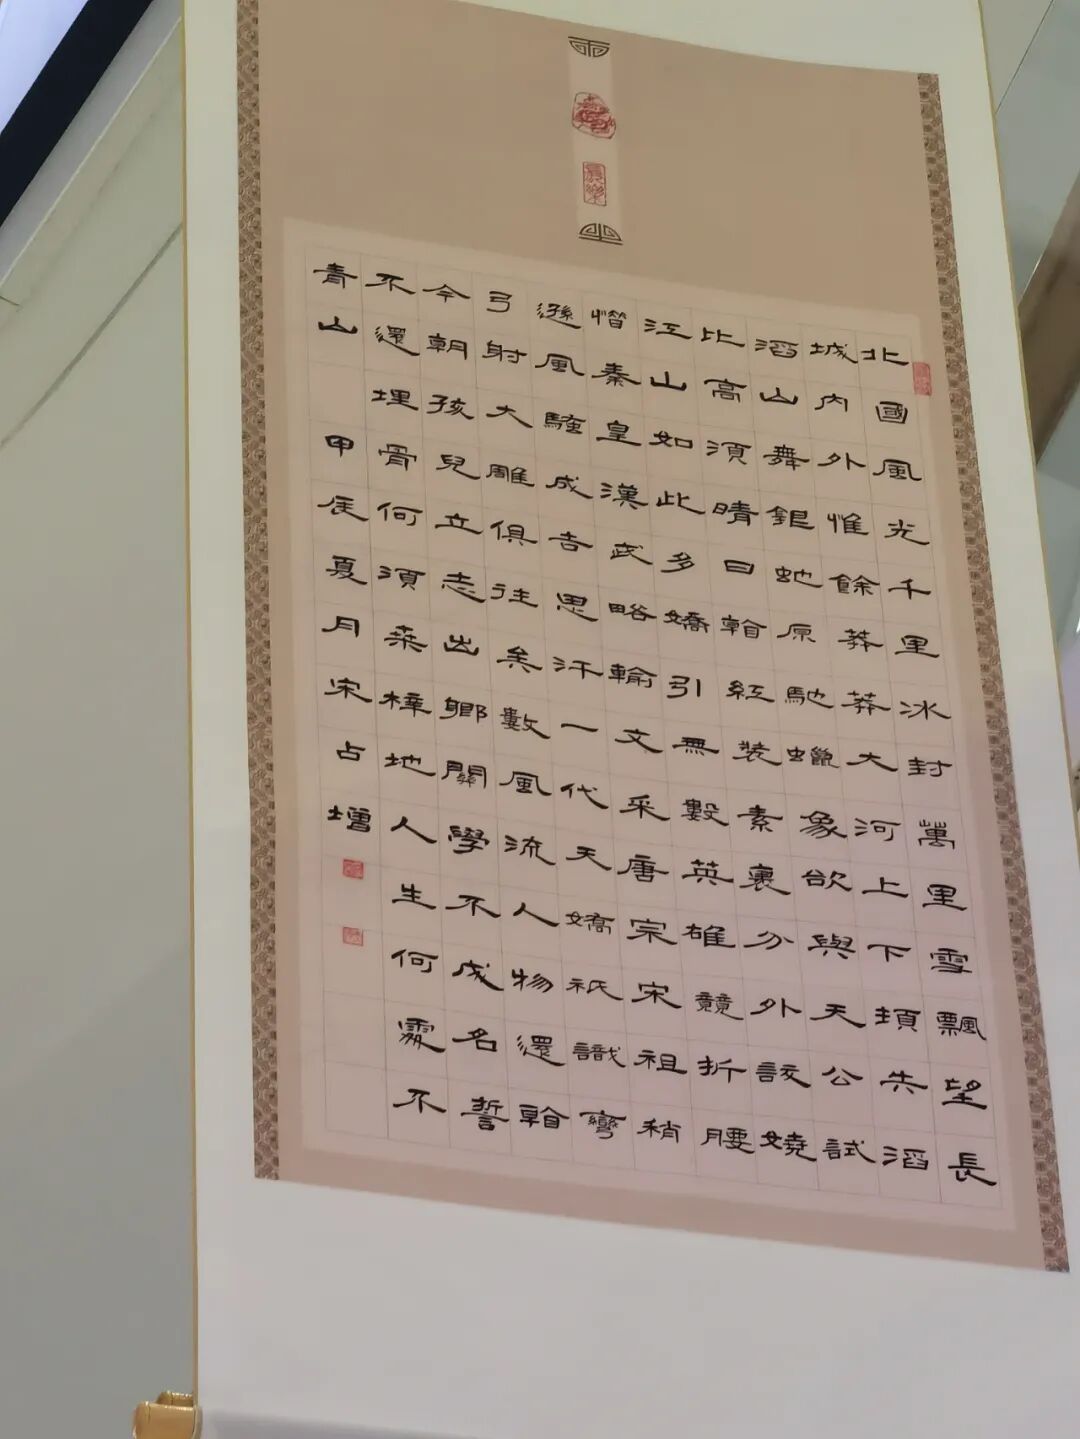 北國風光千里冰封萬里雪飄望長
城內外惟餘莽莽大河上下頓失滔
滔山舞銀蛇原馳蠟象欲與天公試
比高須晴日看紅裝素裹分外嬈
江山如此多嬌引無數英雄競折腰
惜秦皇漢武略輸文采唐宗宋祖稍
遜風騷成吉思汗一代天嬌祇識彎
弓射大雕俱往矣數風流人物還看
今朝孩兒立志出鄉關學不成名誓
不還埋骨何須桑梓地人生何處不
青山 甲辰夏月宋占增